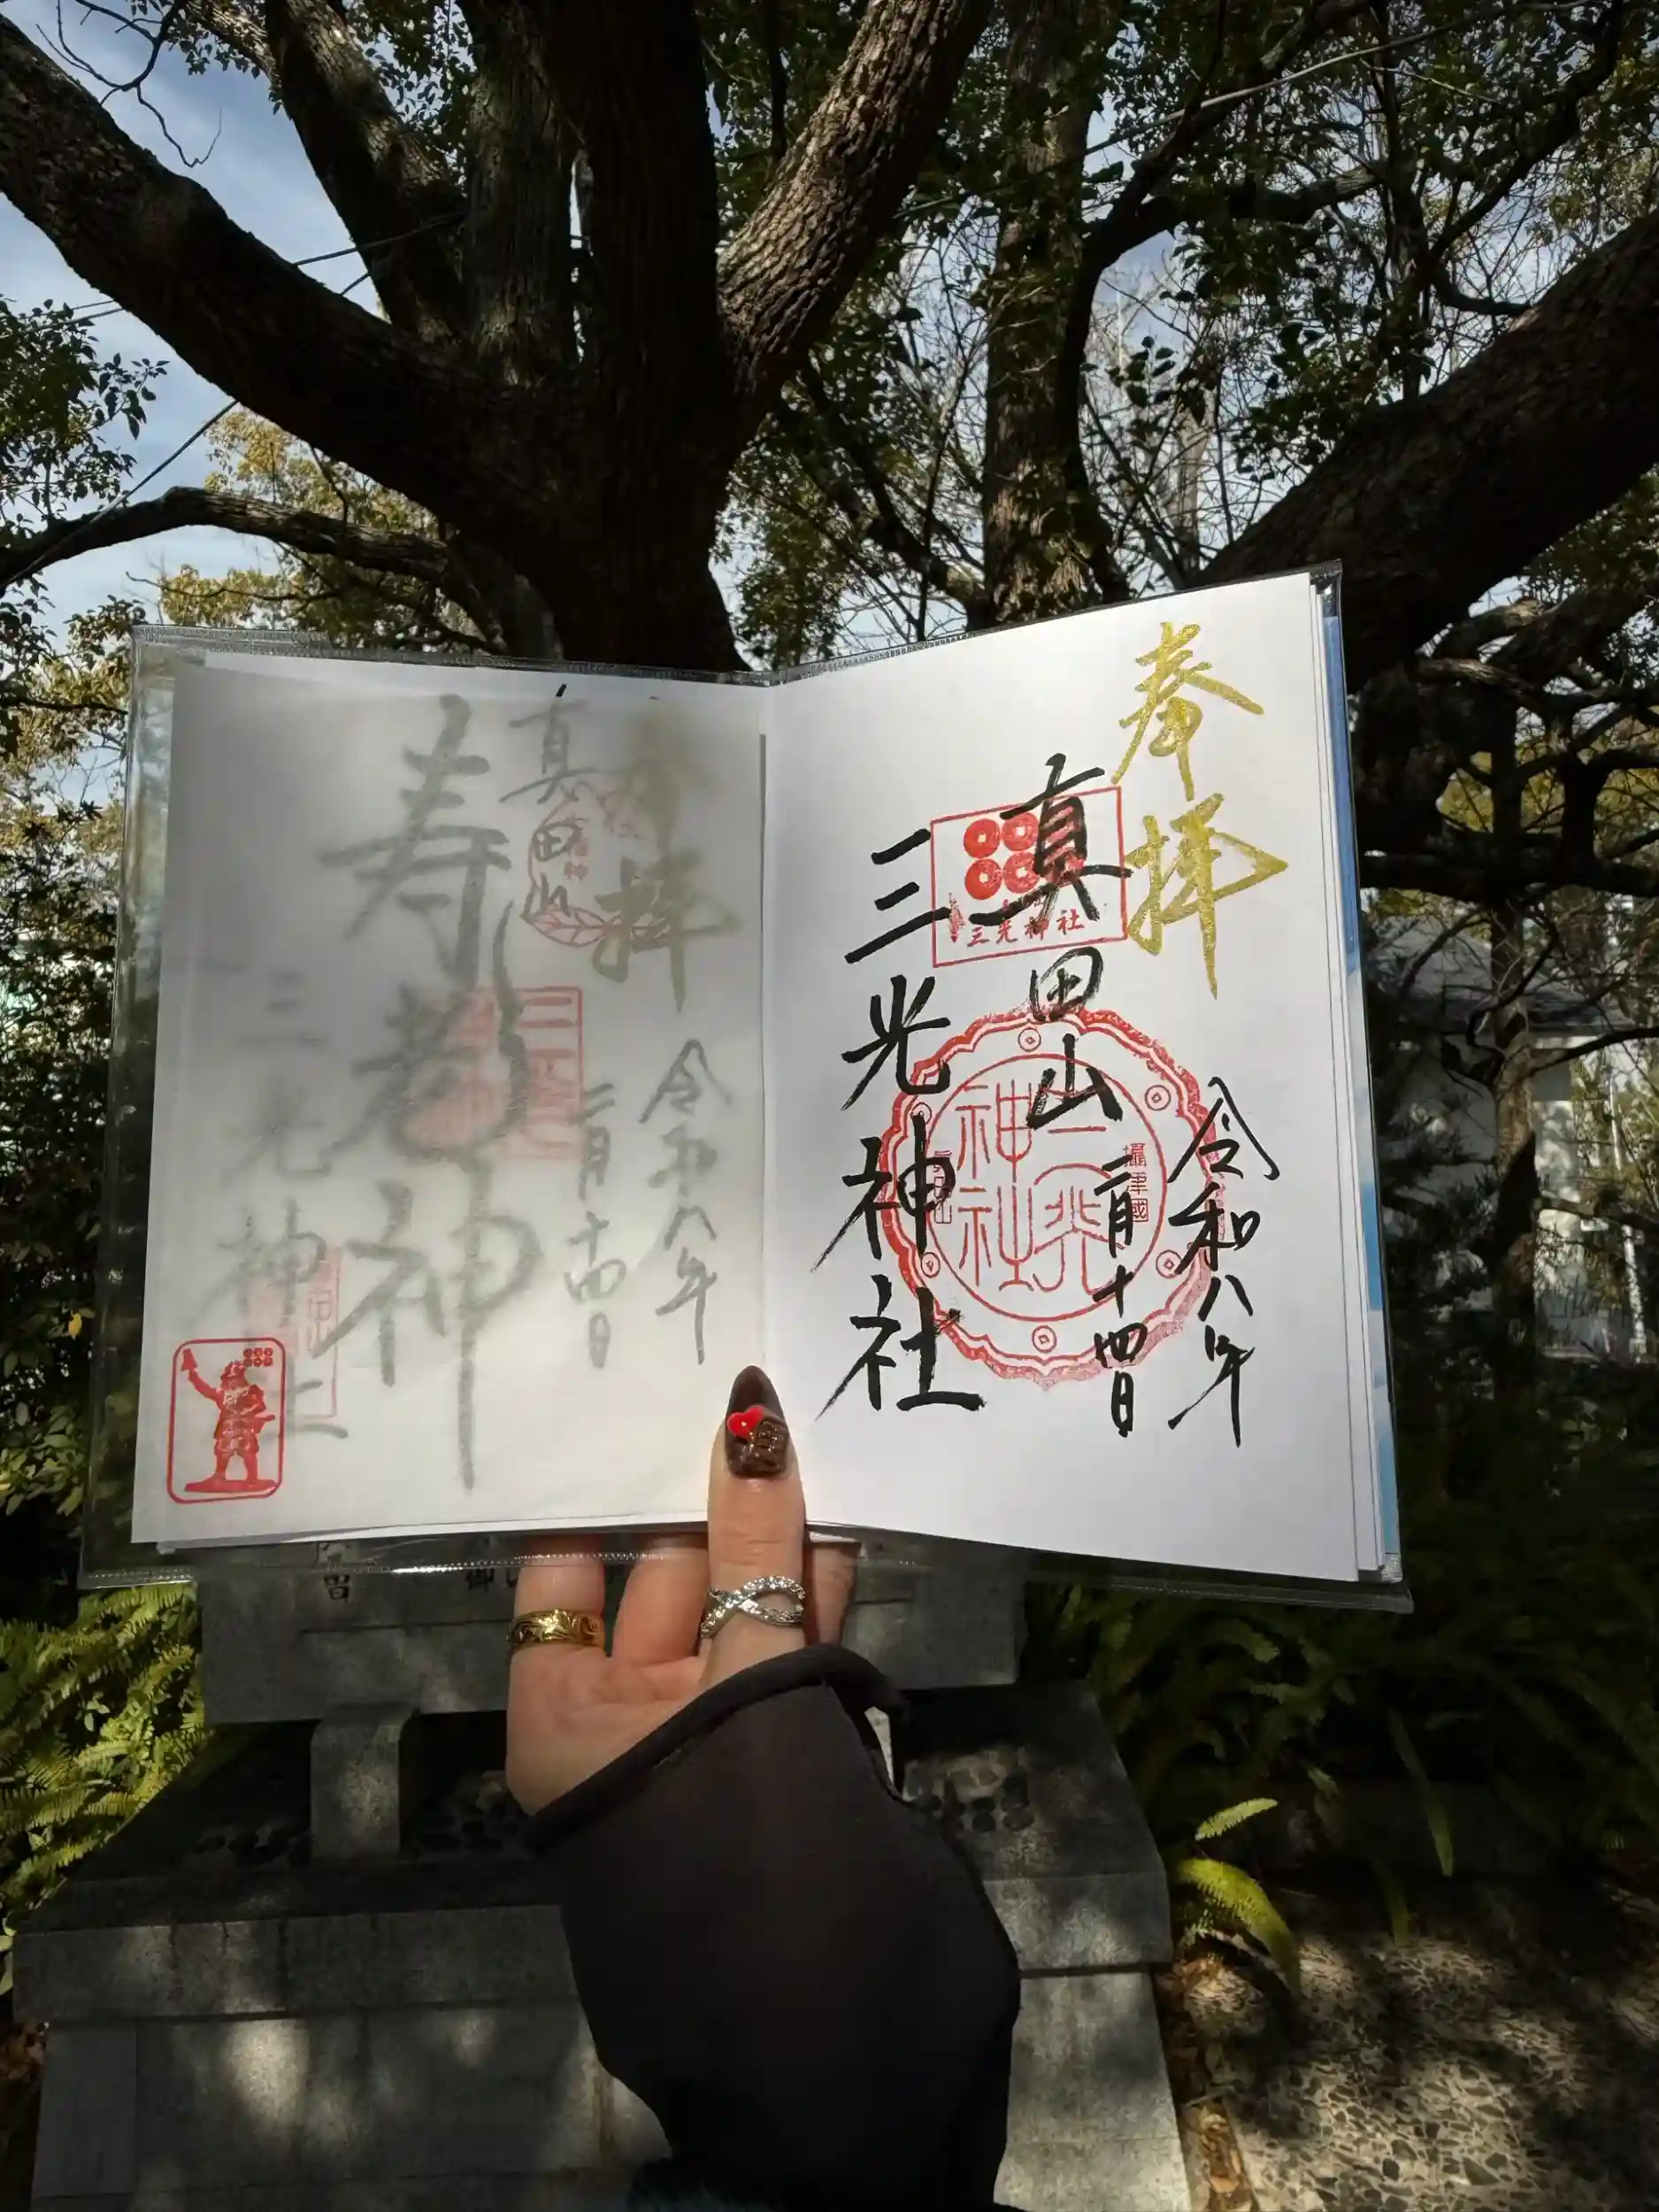 奉拝
真田山
三光神社
令和八年
二月十四日
三光神社
神社
三光
攝津國
奉拝
真田山
寿老神
令和八年
二月十四日
三光神社